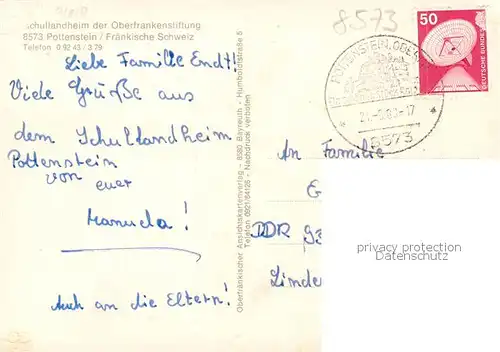 8573
Schullandheim der Oberfrankenstiftung
8573 Pottenstein / Fränkische Schweiz
Telefon 0 92 43 / 3 79
Liebe Familie Endt!
Viele Grüße aus
dem Schullandheim
Pottenstein
von euer
Manuela!
Auch an die Eltern!
Oberfränkischer Ansichtskartenverlag - 8580 Bayreuth - Humboldtstraße 5
Telefon 0921/64126 - Nachdruck verboten
50
DEUTSCHE BUNDES
POTTENSTEIN, OBERFR
-17
8573
An Familie
E
DDR 93
Linden
privacy protection
Datenschutz